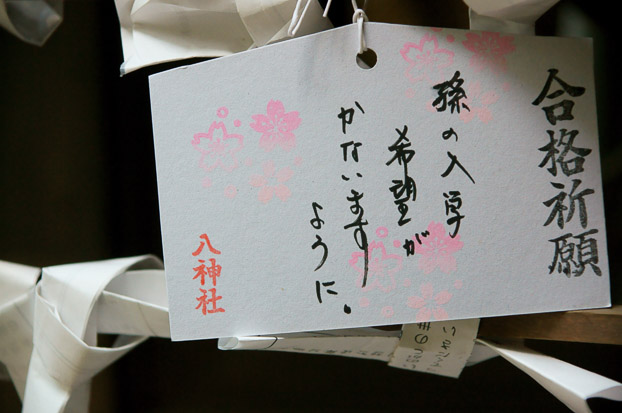 合格祈願
孫の入学
希望が
かないます
ように。
八神社